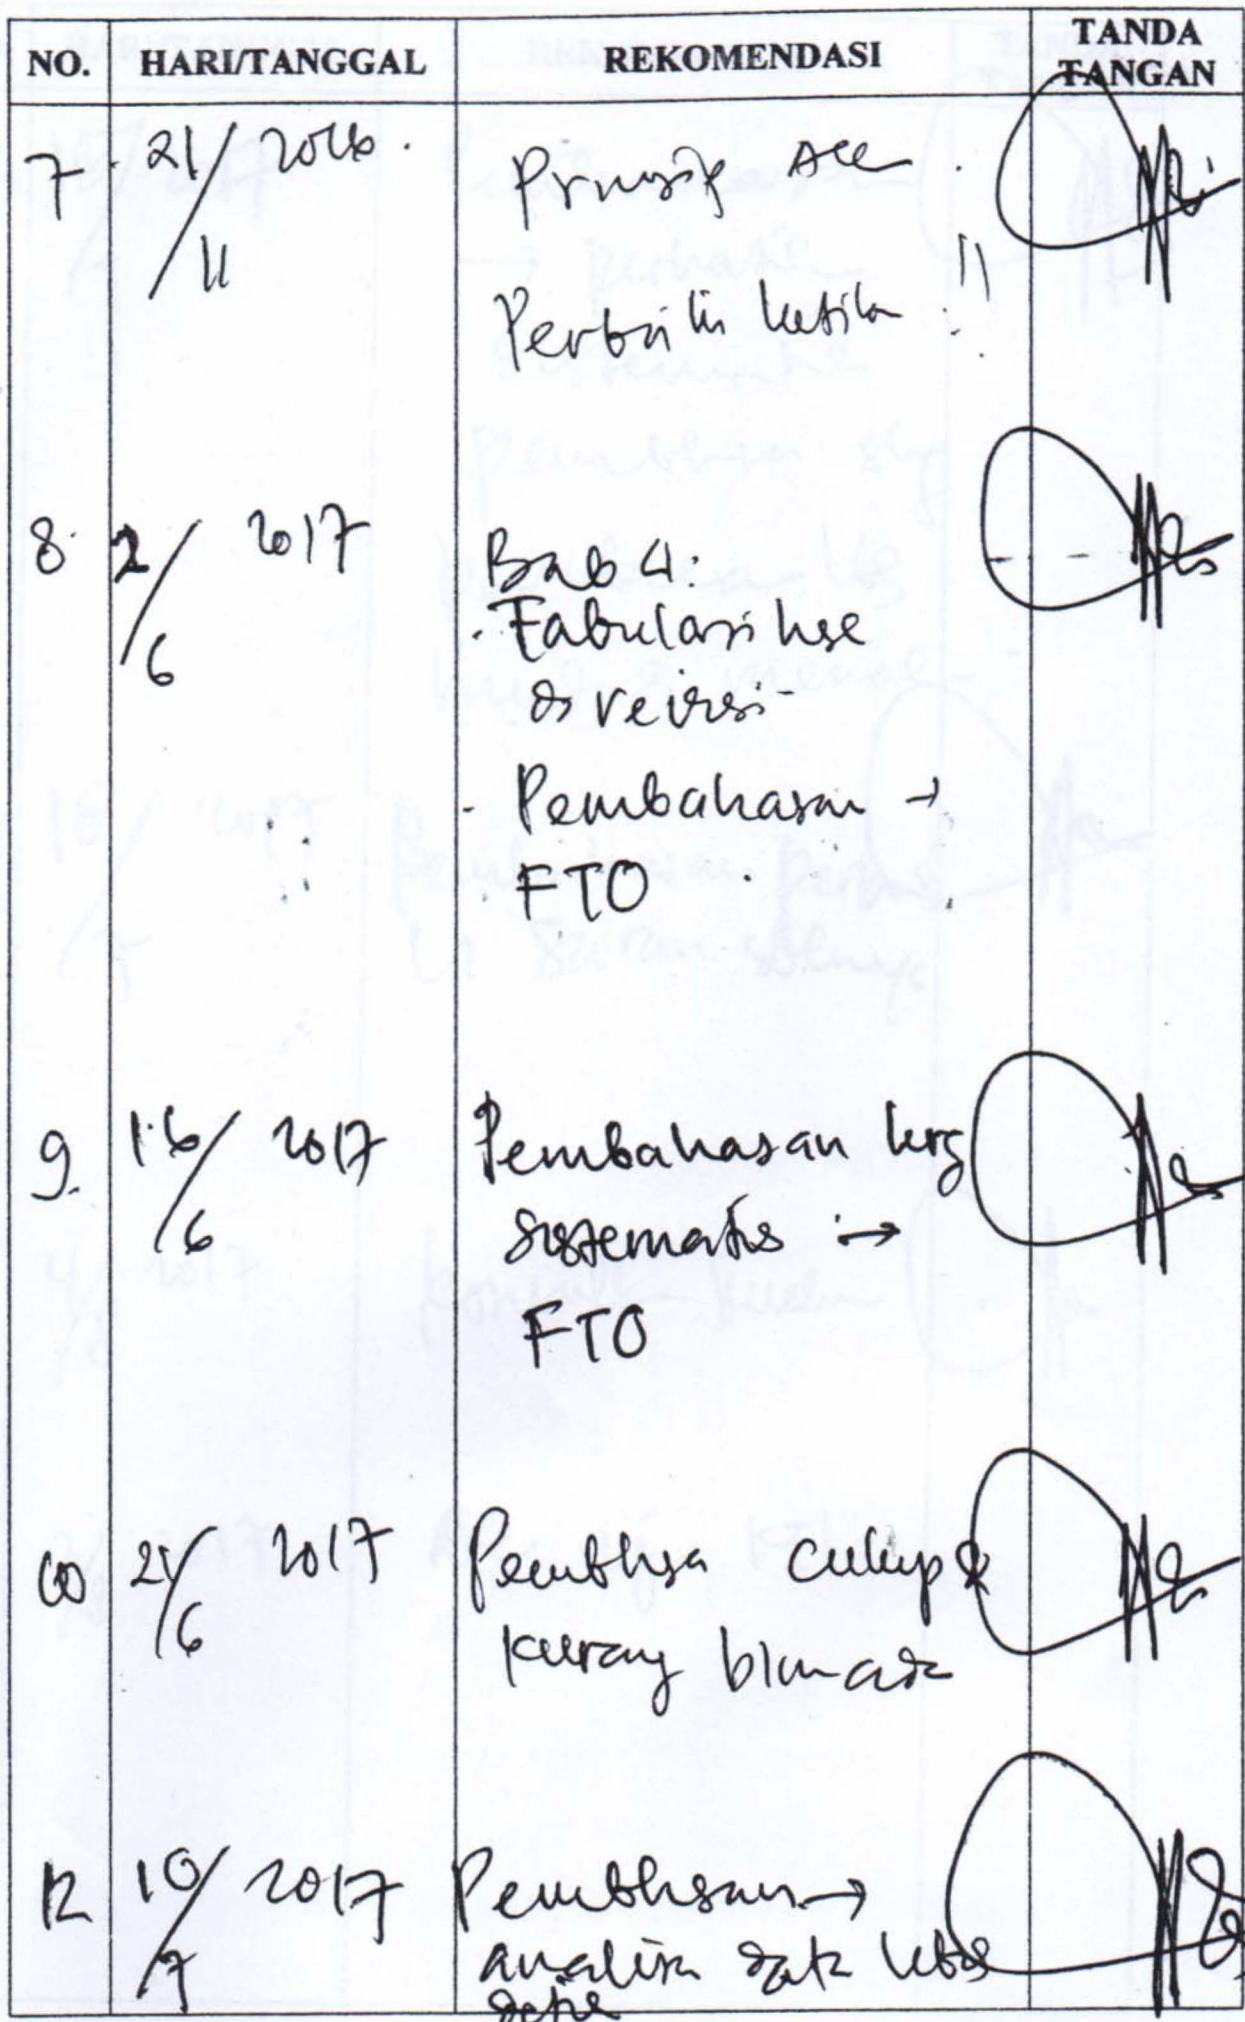 NO. HARI/TANGGAL REKOMENDASI TANDA TANGAN
7 21/11 2016. Prinsip Acc
Perbaiki ketikan !!
8. 2/6 2017 Bab 4:
- Tabulasi hse
di reivisi
- Pembahasan →
FTO
9. 16/6 2017 Pembahasan krg
sistematis →
FTO
10 21/6 2017 Pembhsn cukup
kurang blm ada
12 10/7 2017 Pembhsan →
analisa data lebih